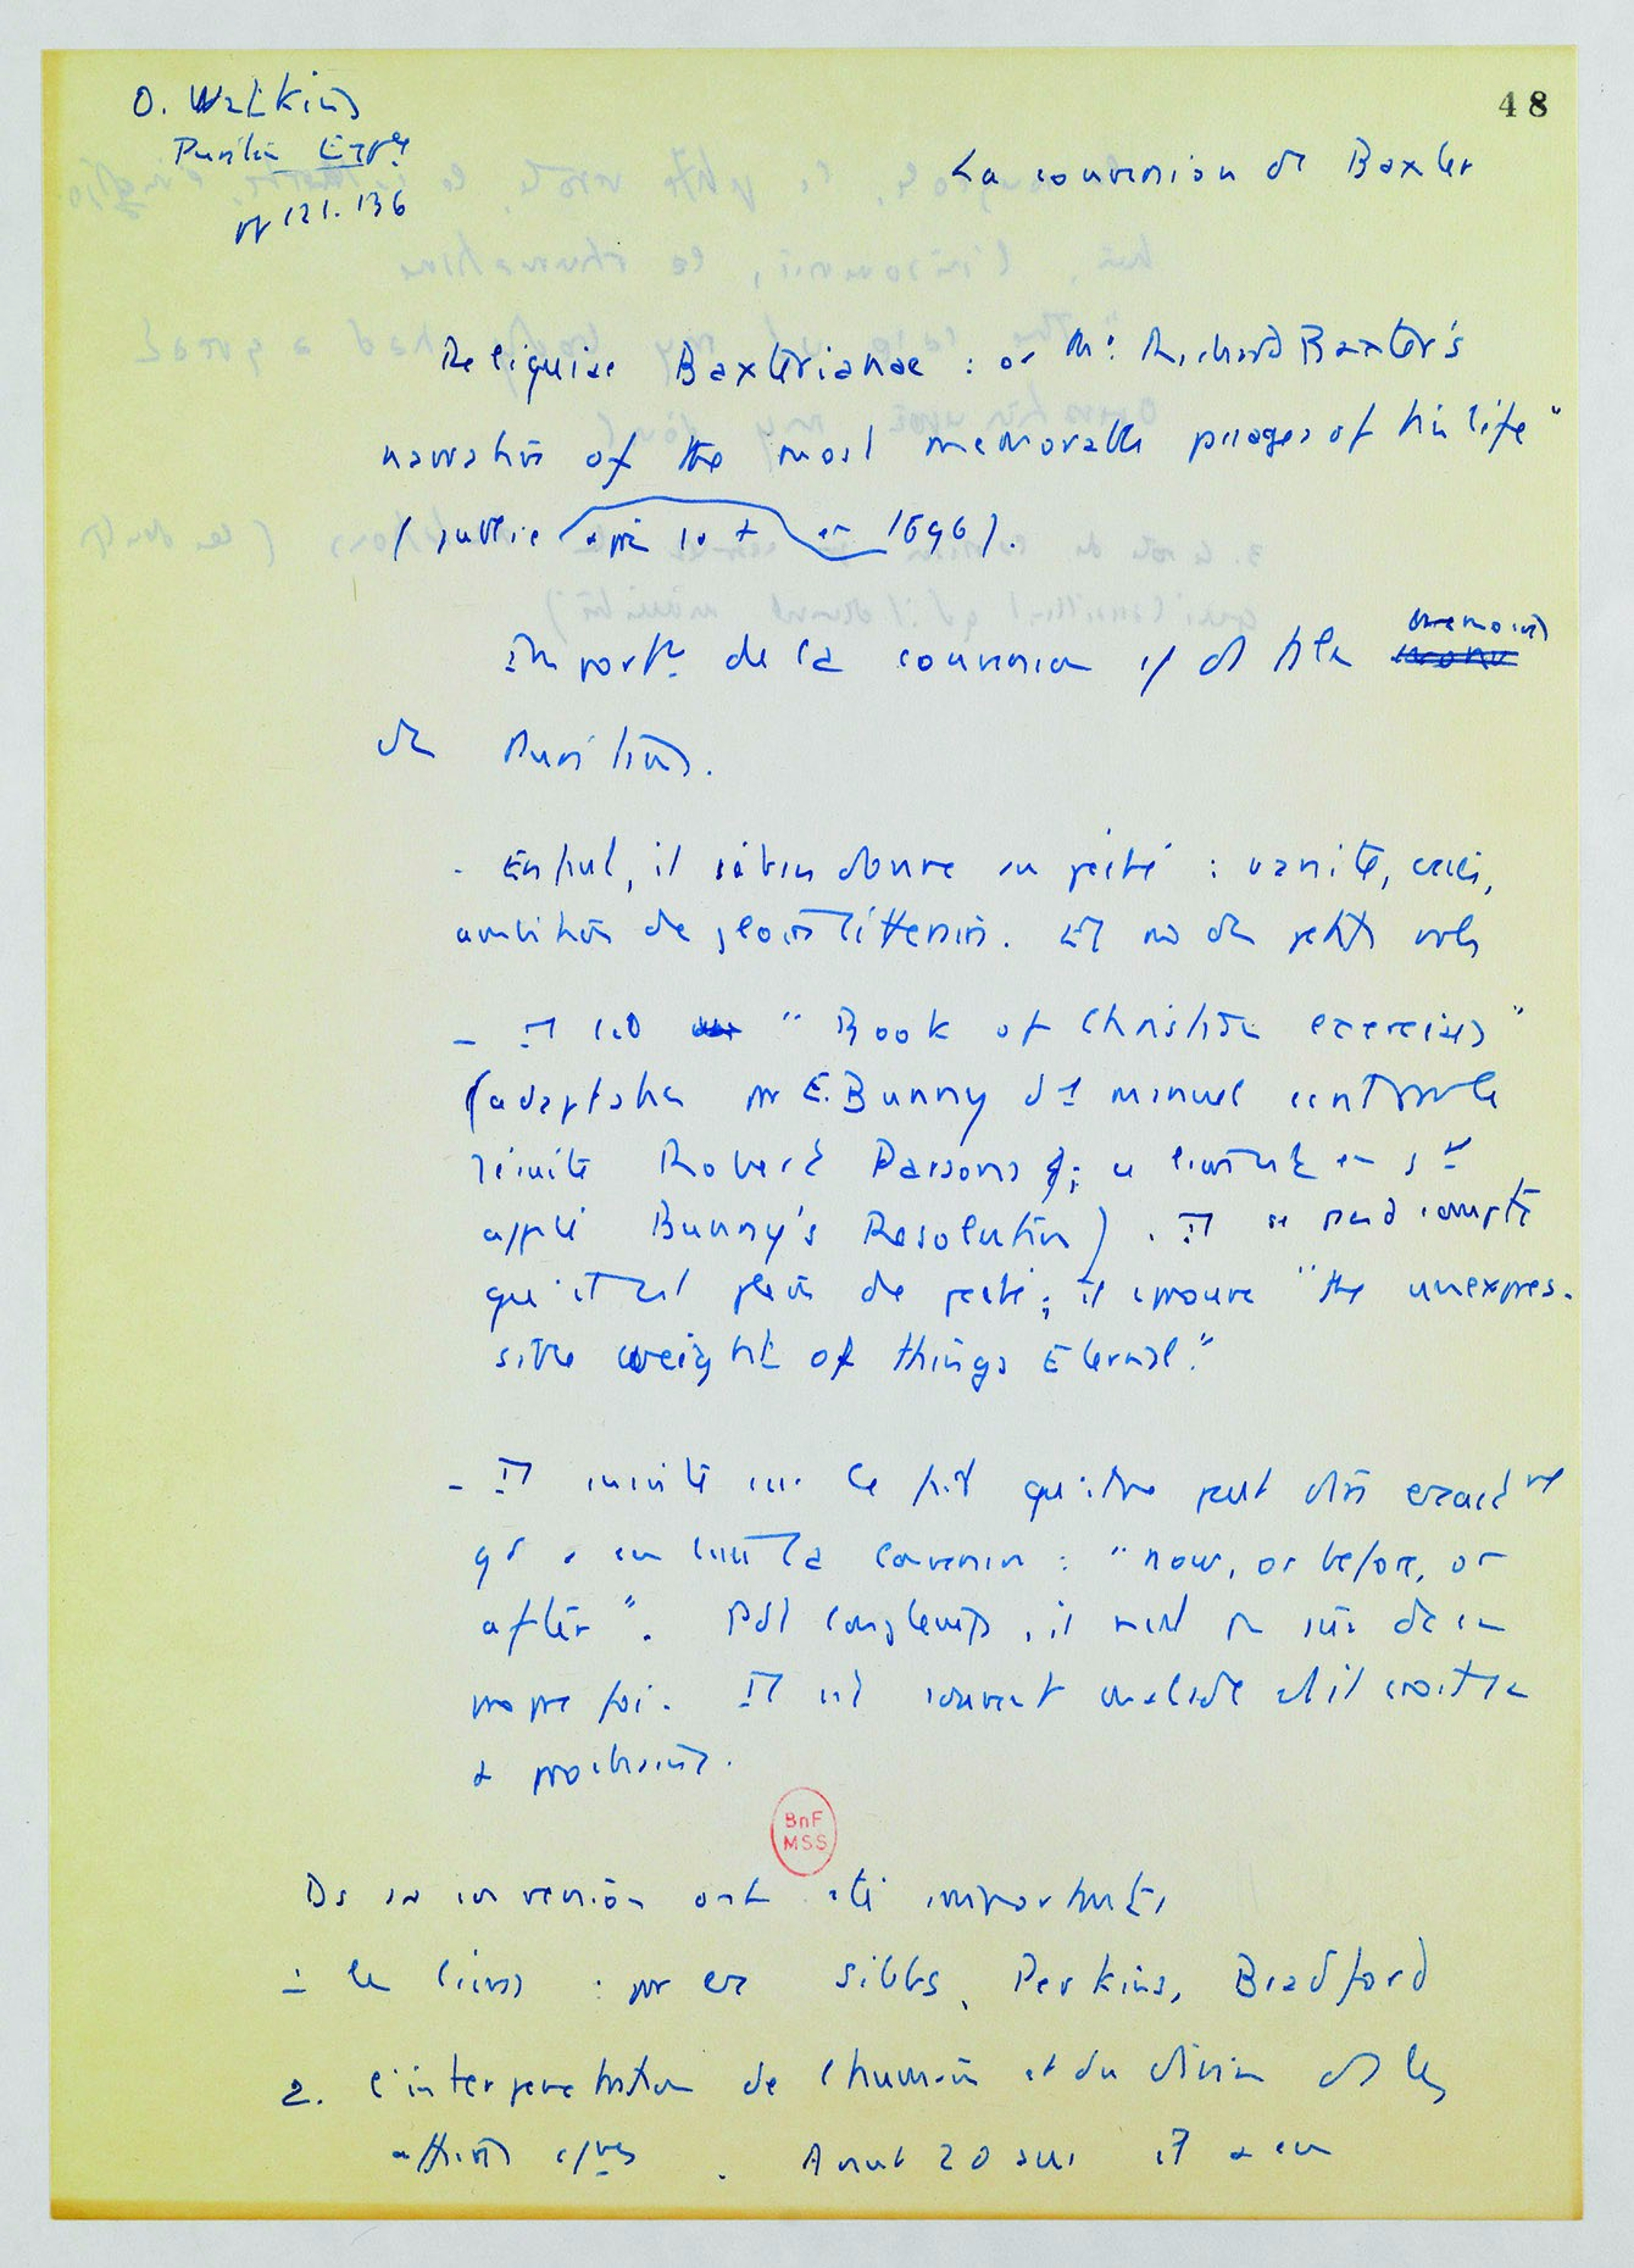 O. Watkins
48
Puritan Expce
pp 121. 136
La conversion de Baxter
Reliquiae Baxterianae : or Mr Richard Baxter's
narration of the most memorable passages of his life"
(publié après sa † en 1696).
Import. de la conversion et de
memoires
de Puritains.
- Enfant, il s'était donné au péché : vanité,
ambition de gloire littéraire. Et de petits vols
- Il lit "Book of Christian exercises"
(adaptation par E. Bunny d'1 manuel
jésuite Robert Parsons ; ce livre en
appelé Bunny's Resolution). Il se rend compte
qu'il est plein de péché ; il éprouve "the unexpres-
sible weight of things Eternal."
- Il insiste sur le fait qu'il ne peut dire exactmt
qd a eu lieu la conversion : "now, or before, or
after". Pdt longtemps, il n'est pas sûr de sa
propre foi. Il est souvent malade et il croit sa
† prochaine.
BnF
MSS
Ds sa conversion ont été importants
1. les livres : par ex Sibbs, Perkins, Bradford
2. l'interpenetration de l'humain et du divin ds les
. Avant 20 ans il a eu